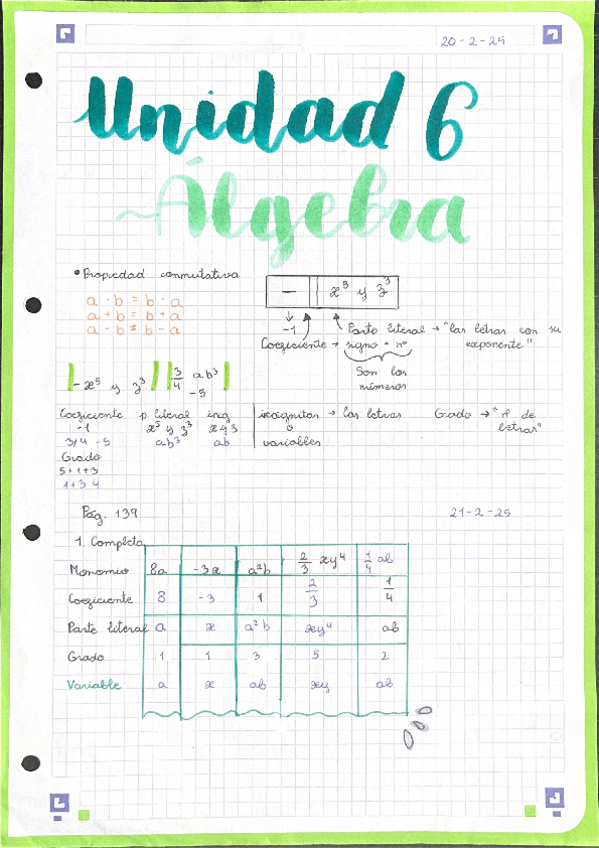 20-2-25
Unidad 6
Álgebra
• Propiedad conmutativa
a · b = b · a
a + b = b + a
a - b ≠ b - a
- x⁵ y z³
-1
Coeficiente → signo + nº
Son los números
Parte literal → "las letras con su exponente"
- x⁵ y z³
3/4 ab³ -5
Coeficiente p. literal incg
-1 x⁵ y z³ xyz
3/4 -5 ab³ ab
Grado
5+1+3
1+3 4
incógnitas → las letras
o
variables
Grado → "nº de letras"
Pág. 139
21-2-25
1. Completa
Monomio 8a -3x a²b 2/3 xy⁴ 1/4 ab
Coeficiente 8 -3 1 2/3 1/4
Parte literal a x a²b xy⁴ ab
Grado 1 1 3 5 2
Variable a x ab xy ab